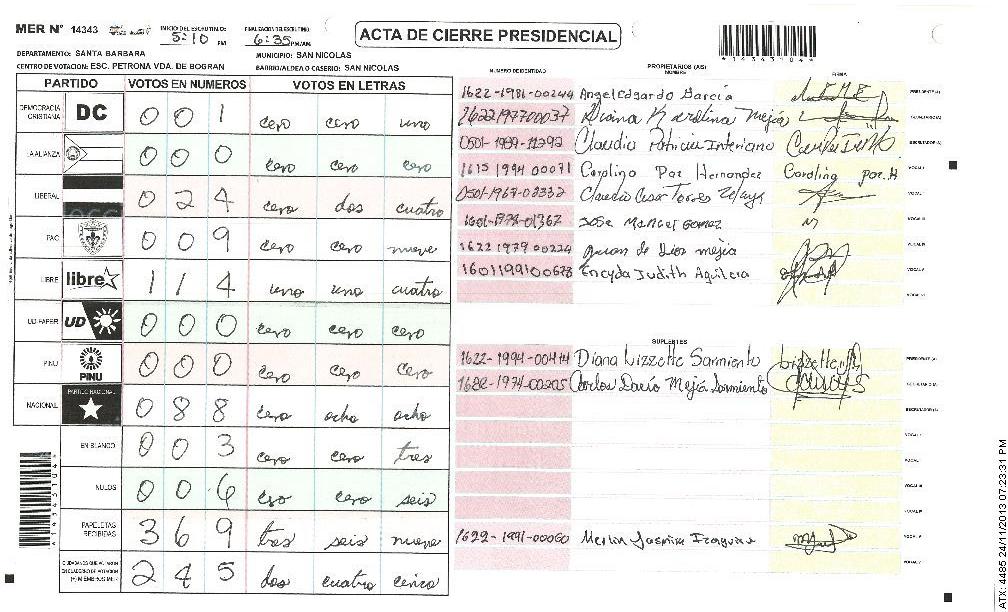 MER N° 14343
INICIO DEL ESCRUTINIO: 5:10 PM
FINALIZACION DEL ESCRUTINIO 6:35 PM/AM
ACTA DE CIERRE PRESIDENCIAL
*14343104*
DEPARTAMENTO: SANTA BARBARA
MUNICIPIO: SAN NICOLAS
CENTRO DE VOTACION: ESC. PETRONA VDA. DE BOGRAN
BARRIO/ALDEA O CASERIO: SAN NICOLAS
PARTIDO VOTOS EN NUMEROS VOTOS EN LETRAS
DEMOCRACIA CRISTIANA DC 0 0 1 cero cero uno
LA ALIANZA 0 0 0 cero cero cero
LIBERAL 0 2 4 cero dos cuatro
PAC 0 0 9 cero cero nueve
LIBRE libre 1 1 4 uno uno cuatro
UD-FAPER UD 0 0 0 cero cero cero
PINU PINU 0 0 0 cero cero cero
NACIONAL PARTIDO NACIONAL 0 8 8 cero ocho ocho
EN BLANCO 0 0 3 cero cero tres
NULOS 0 0 6 cero cero seis
PAPELETAS RECIBIDAS 3 6 9 tres seis nueve
CIUDADANOS QUE VOTARON EN CUADERNO DE VOTACION (+) MIEMBROS MER 2 4 5 dos cuatro cinco
NUMERO DE IDENTIDAD PROPIETARIOS (AS) NOMBRE FIRMA
1622-1981-00244 Angel Edgardo Garcia PRESIDENTE (A)
1622197700037 Diana Karolina Mejia
0501-1989-11292 Claudia Patricia Interiano SECRETARIO (A)
1615 1994 00071 Carolina Paz Hernandez VOCAL I
0501-1967-03332 Claudio Cesar Torres VOCAL
1601-1978-01367 Jose Manuel Gomez VOCAL III
1622 1979 00224 Juan de Dios mejia VOCAL IV
1601199100678 Encyda Judith Aguilera VOCAL V
VOCAL VI
SUPLENTES
1622-1994-00414 Diana Lizzette Sarmiento PRESIDENTE (A)
1622-1974-00205 Carlos Dario Mejia Sarmiento
SECRETARIO (A)
VOCAL I
VOCAL
VOCAL III
VOCAL IV
1622-1991-00060 VOCAL V
VOCAL
*14343104*
ATX: 4485 24/11/2013 07:23:31 PM